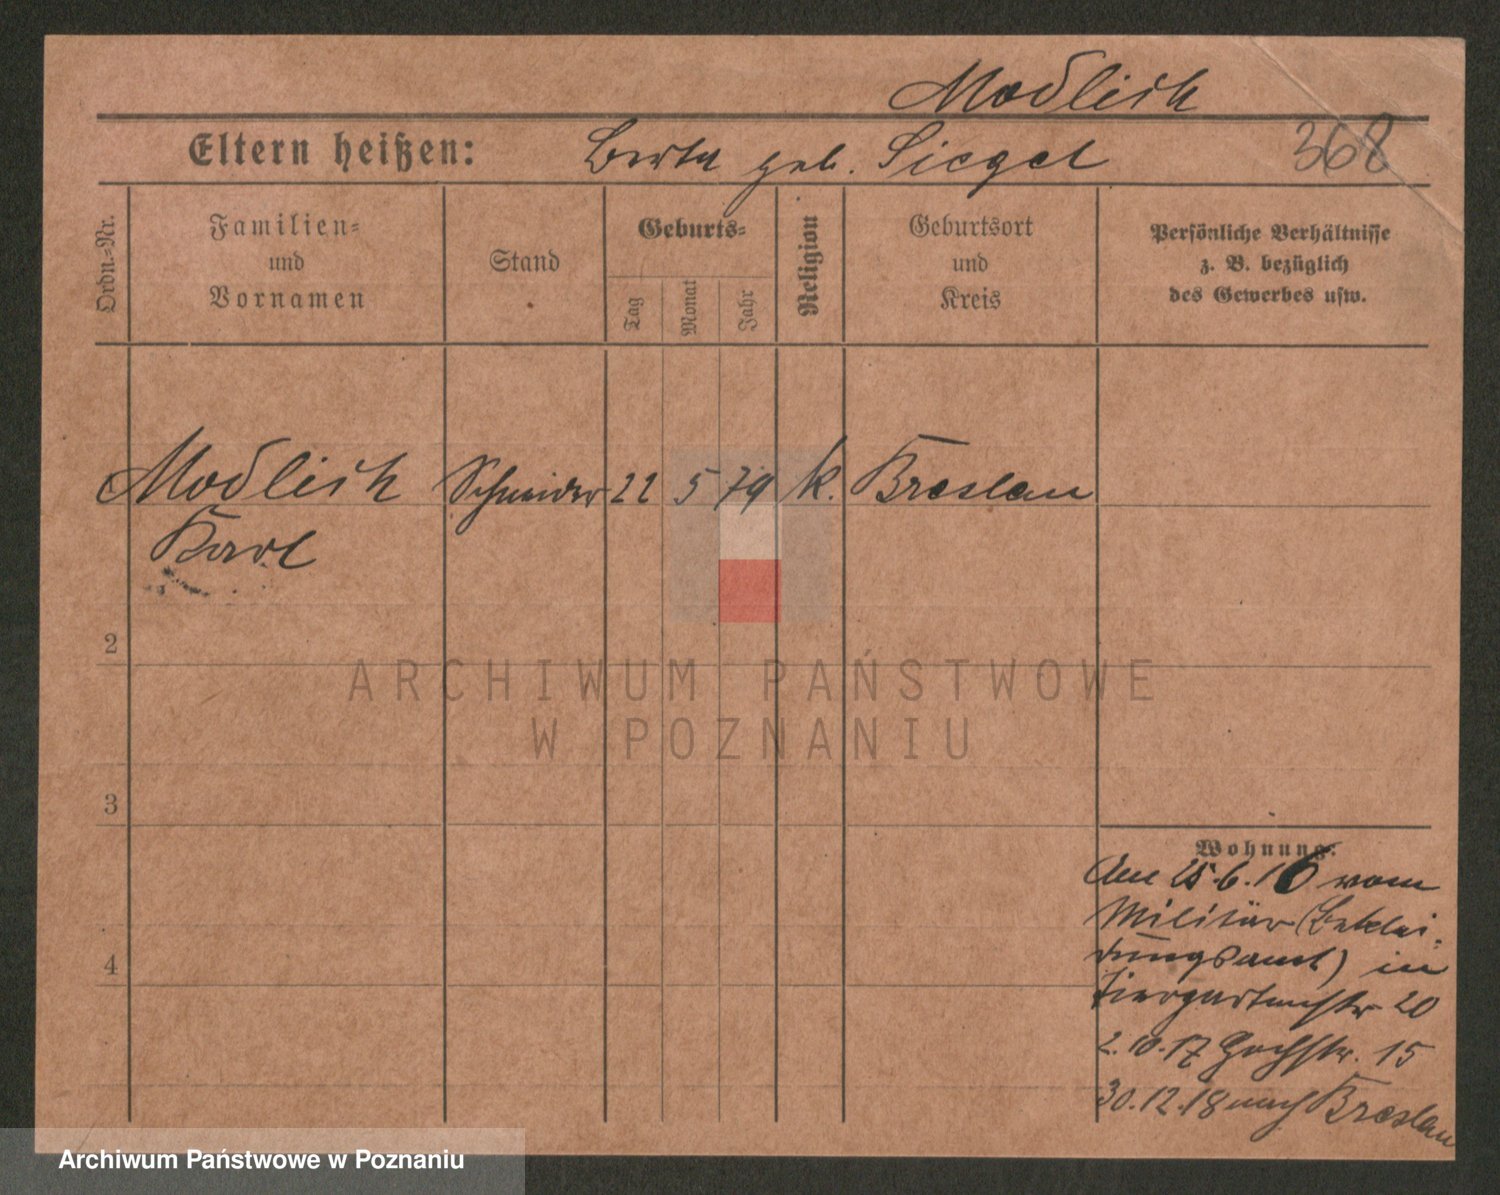 Modlich
Eltern heißen: Berta geb. Siegel 368
Ordn.-Nr.
Familien-
und
Vornamen
Stand
Geburts-
Tag
Monat
Jahr
Religion
Geburtsort
und
Kreis
Persönliche Verhältnisse
z. B. bezüglich
des Gewerbes usw.
Modlich Schneider 22 5 79 k. Breslau
Karl
2
3
4
Wohnung:
Am 25.6.16 vom
Militär (Beklei-
dungsamt) in
Tiergartenstr 20
2.10.17 Hochstr. 15
30.12.18 nach Breslau
ARCHIWUM PAŃSTWOWE
W POZNANIU
Archiwum Państwowe w Poznaniu